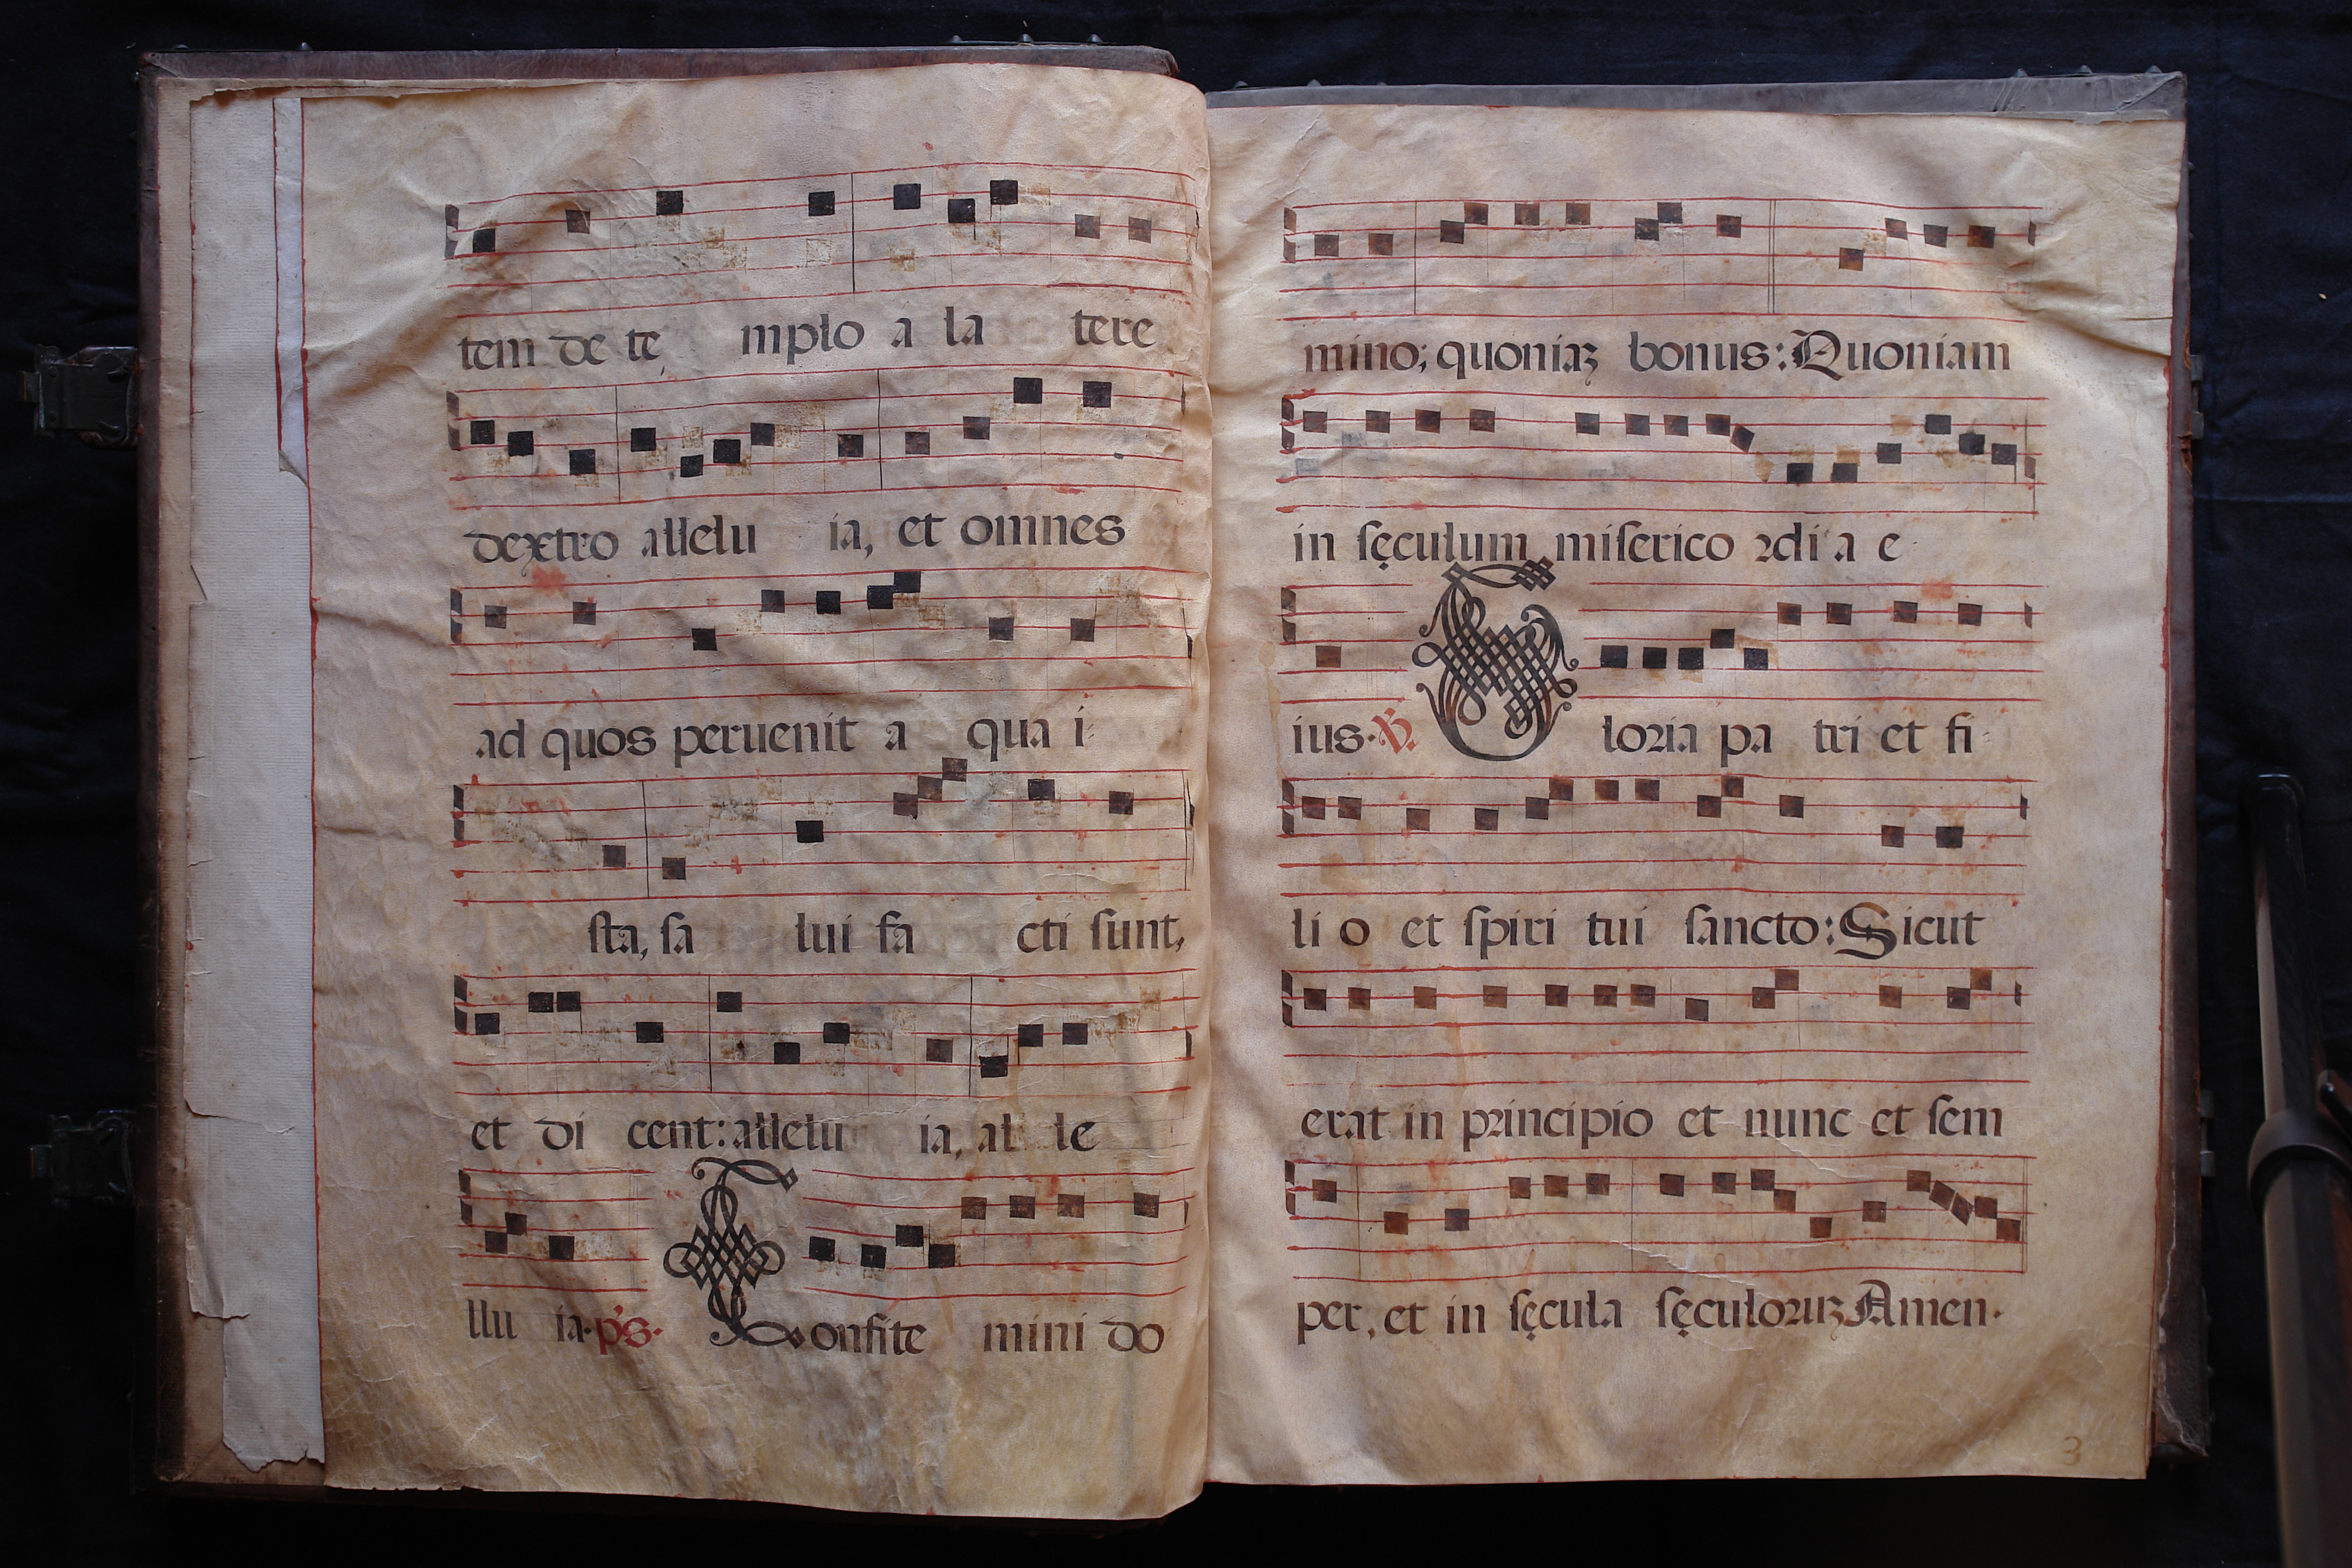 tem de te mplo a la tere
dextro allelu ia, et omnes
ad quos peruenit a qua i
sta, sa lui fa cti sunt,
et di cent: allelu ia, al le
llu ia. ps. Confite mini do
mino; quoniaꝫ bonus: Quoniam
in sęculum misericoꝛdi a e
ius. ℣. Gloꝛia pa tri et fi
li o et spiri tui sancto: Sicut
erat in pꝛincipio et nunc et sem
per, et in sęcula sęculoꝛuꝫ Amen.
3